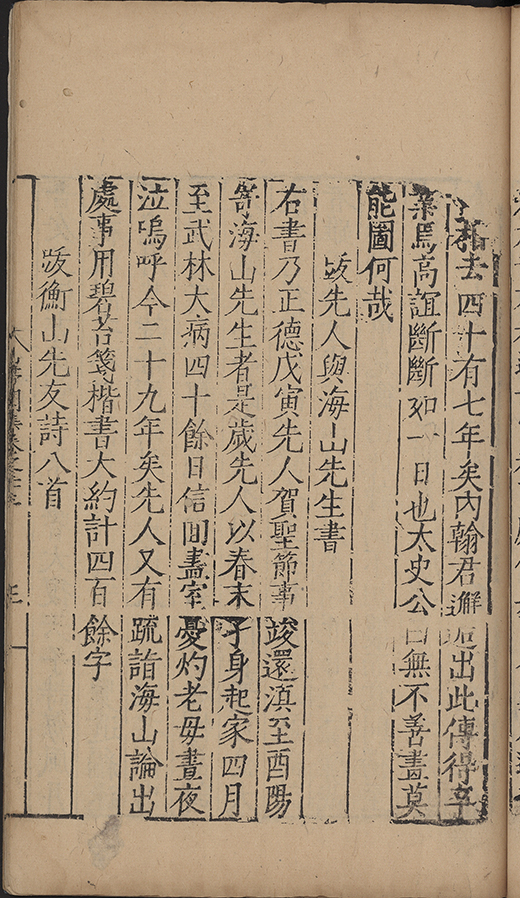 去四十有七年矣內翰君邂逅出此傳得卒
業焉高誼斷斷如一日也太史公曰無不善畫莫
能圖何哉
跋先人與海山先生書
右書乃正德戊寅先人賀聖節事竣還滇至酉陽
寄海山先生者是歲先人以春末孑身起家四月
至武林大病四十餘日信聞盡室憂灼老母晝夜
泣嗚呼今二十九年矣先人又有疏詣海山論出
處事用碧苔箋楷書大約計四百餘字
跋衡山先友詩八首